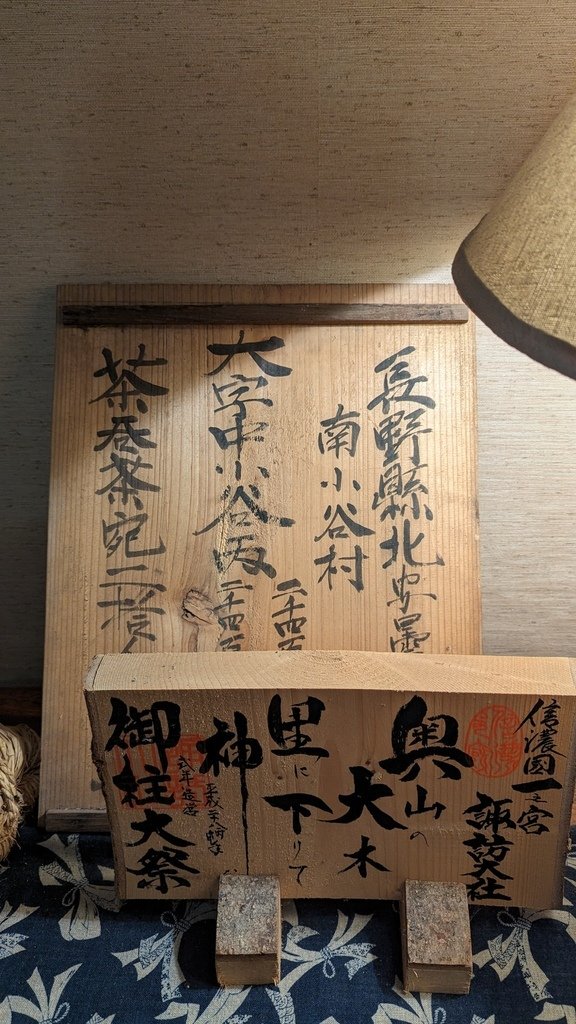 長野縣北安曇
南小谷村
大字中小谷丙
二千四百
二千四百
茶呑茶宛
信濃國一之宮
諏訪大社
奥山の
大木
里に
下りて
神
御柱大祭